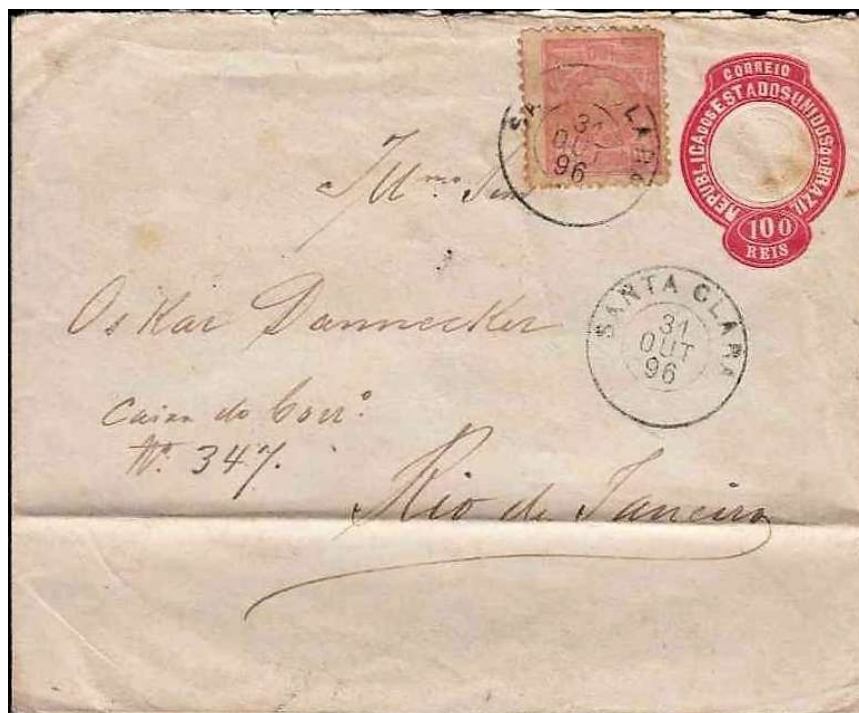 CORREIO
REPUBLICA DOS ESTADOS UNIDOS DO BRAZIL
100
REIS
LARA
31
OUT
96
Illmo Snr
Oskar Dannecker
SANTA CLARA
31
OUT
96
Caixa do Corro
No 347.
Rio de Janeiro